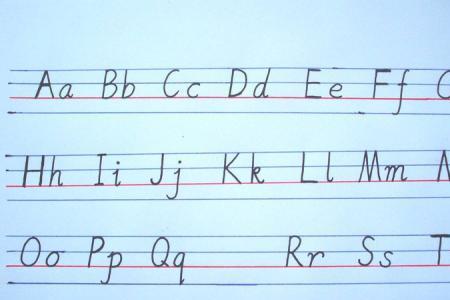 Aa Bb Cc Dd Ee Ff
Hh Ii Jj Kk Ll Mm
Oo Pp Qq Rr Ss T